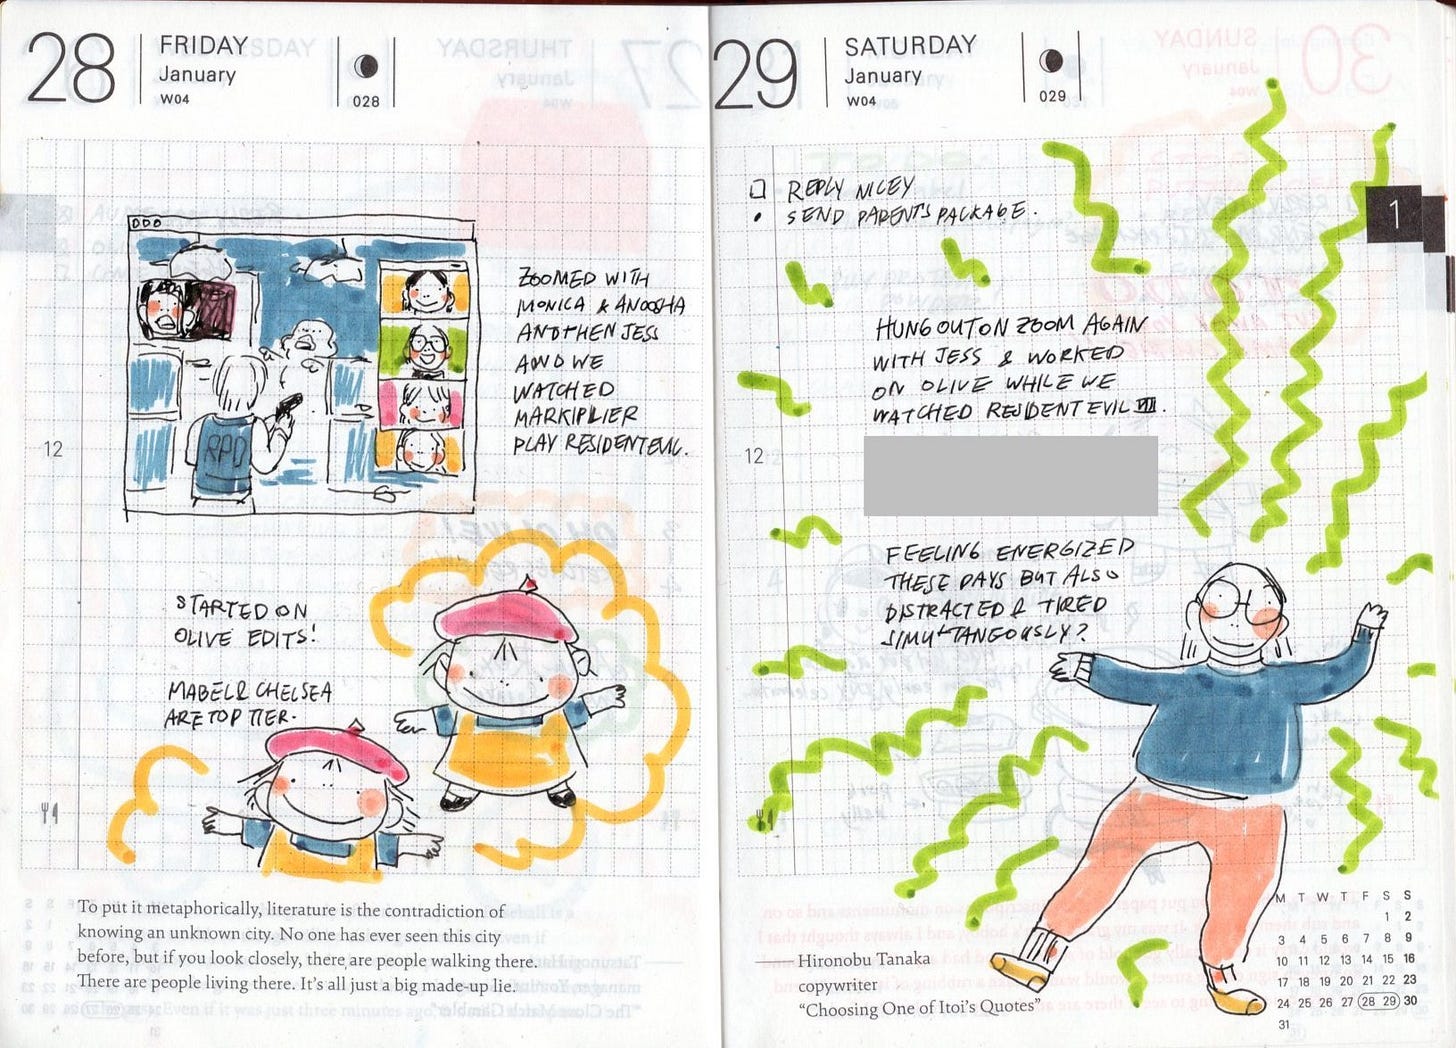 28
FRIDAY
January
W04
028
RPD
ZOOMED WITH
MONICA & ANOOSHA
AND THEN JESS
AND WE
WATCHED
MARKIPLIER
PLAY RESIDENT EVIL.
12
STARTED ON
OLIVE EDITS!
MABEL & CHELSEA
ARE TOP TIER.
To put it metaphorically, literature is the contradiction of
knowing an unknown city. No one has ever seen this city
before, but if you look closely, there are people walking there.
There are people living there. It's all just a big made-up lie.
29
SATURDAY
January
W04
029
1
REPLY NICEY
• SEND PARENTS PACKAGE.
HUNG OUT ON ZOOM AGAIN
WITH JESS & WORKED
ON OLIVE WHILE WE
WATCHED RESIDENT EVIL VII.
12
FEELING ENERGIZED
THESE DAYS BUT ALSO
DISTRACTED & TIRED
SIMULTANEOUSLY?
——Hironobu Tanaka
copywriter
“Choosing One of Itoi's Quotes”
M T W T F S S
1 2
3 4 5 6 7 8 9
10 11 12 13 14 15 16
17 18 19 20 21 22 23
24 25 26 27 28 29 30
31